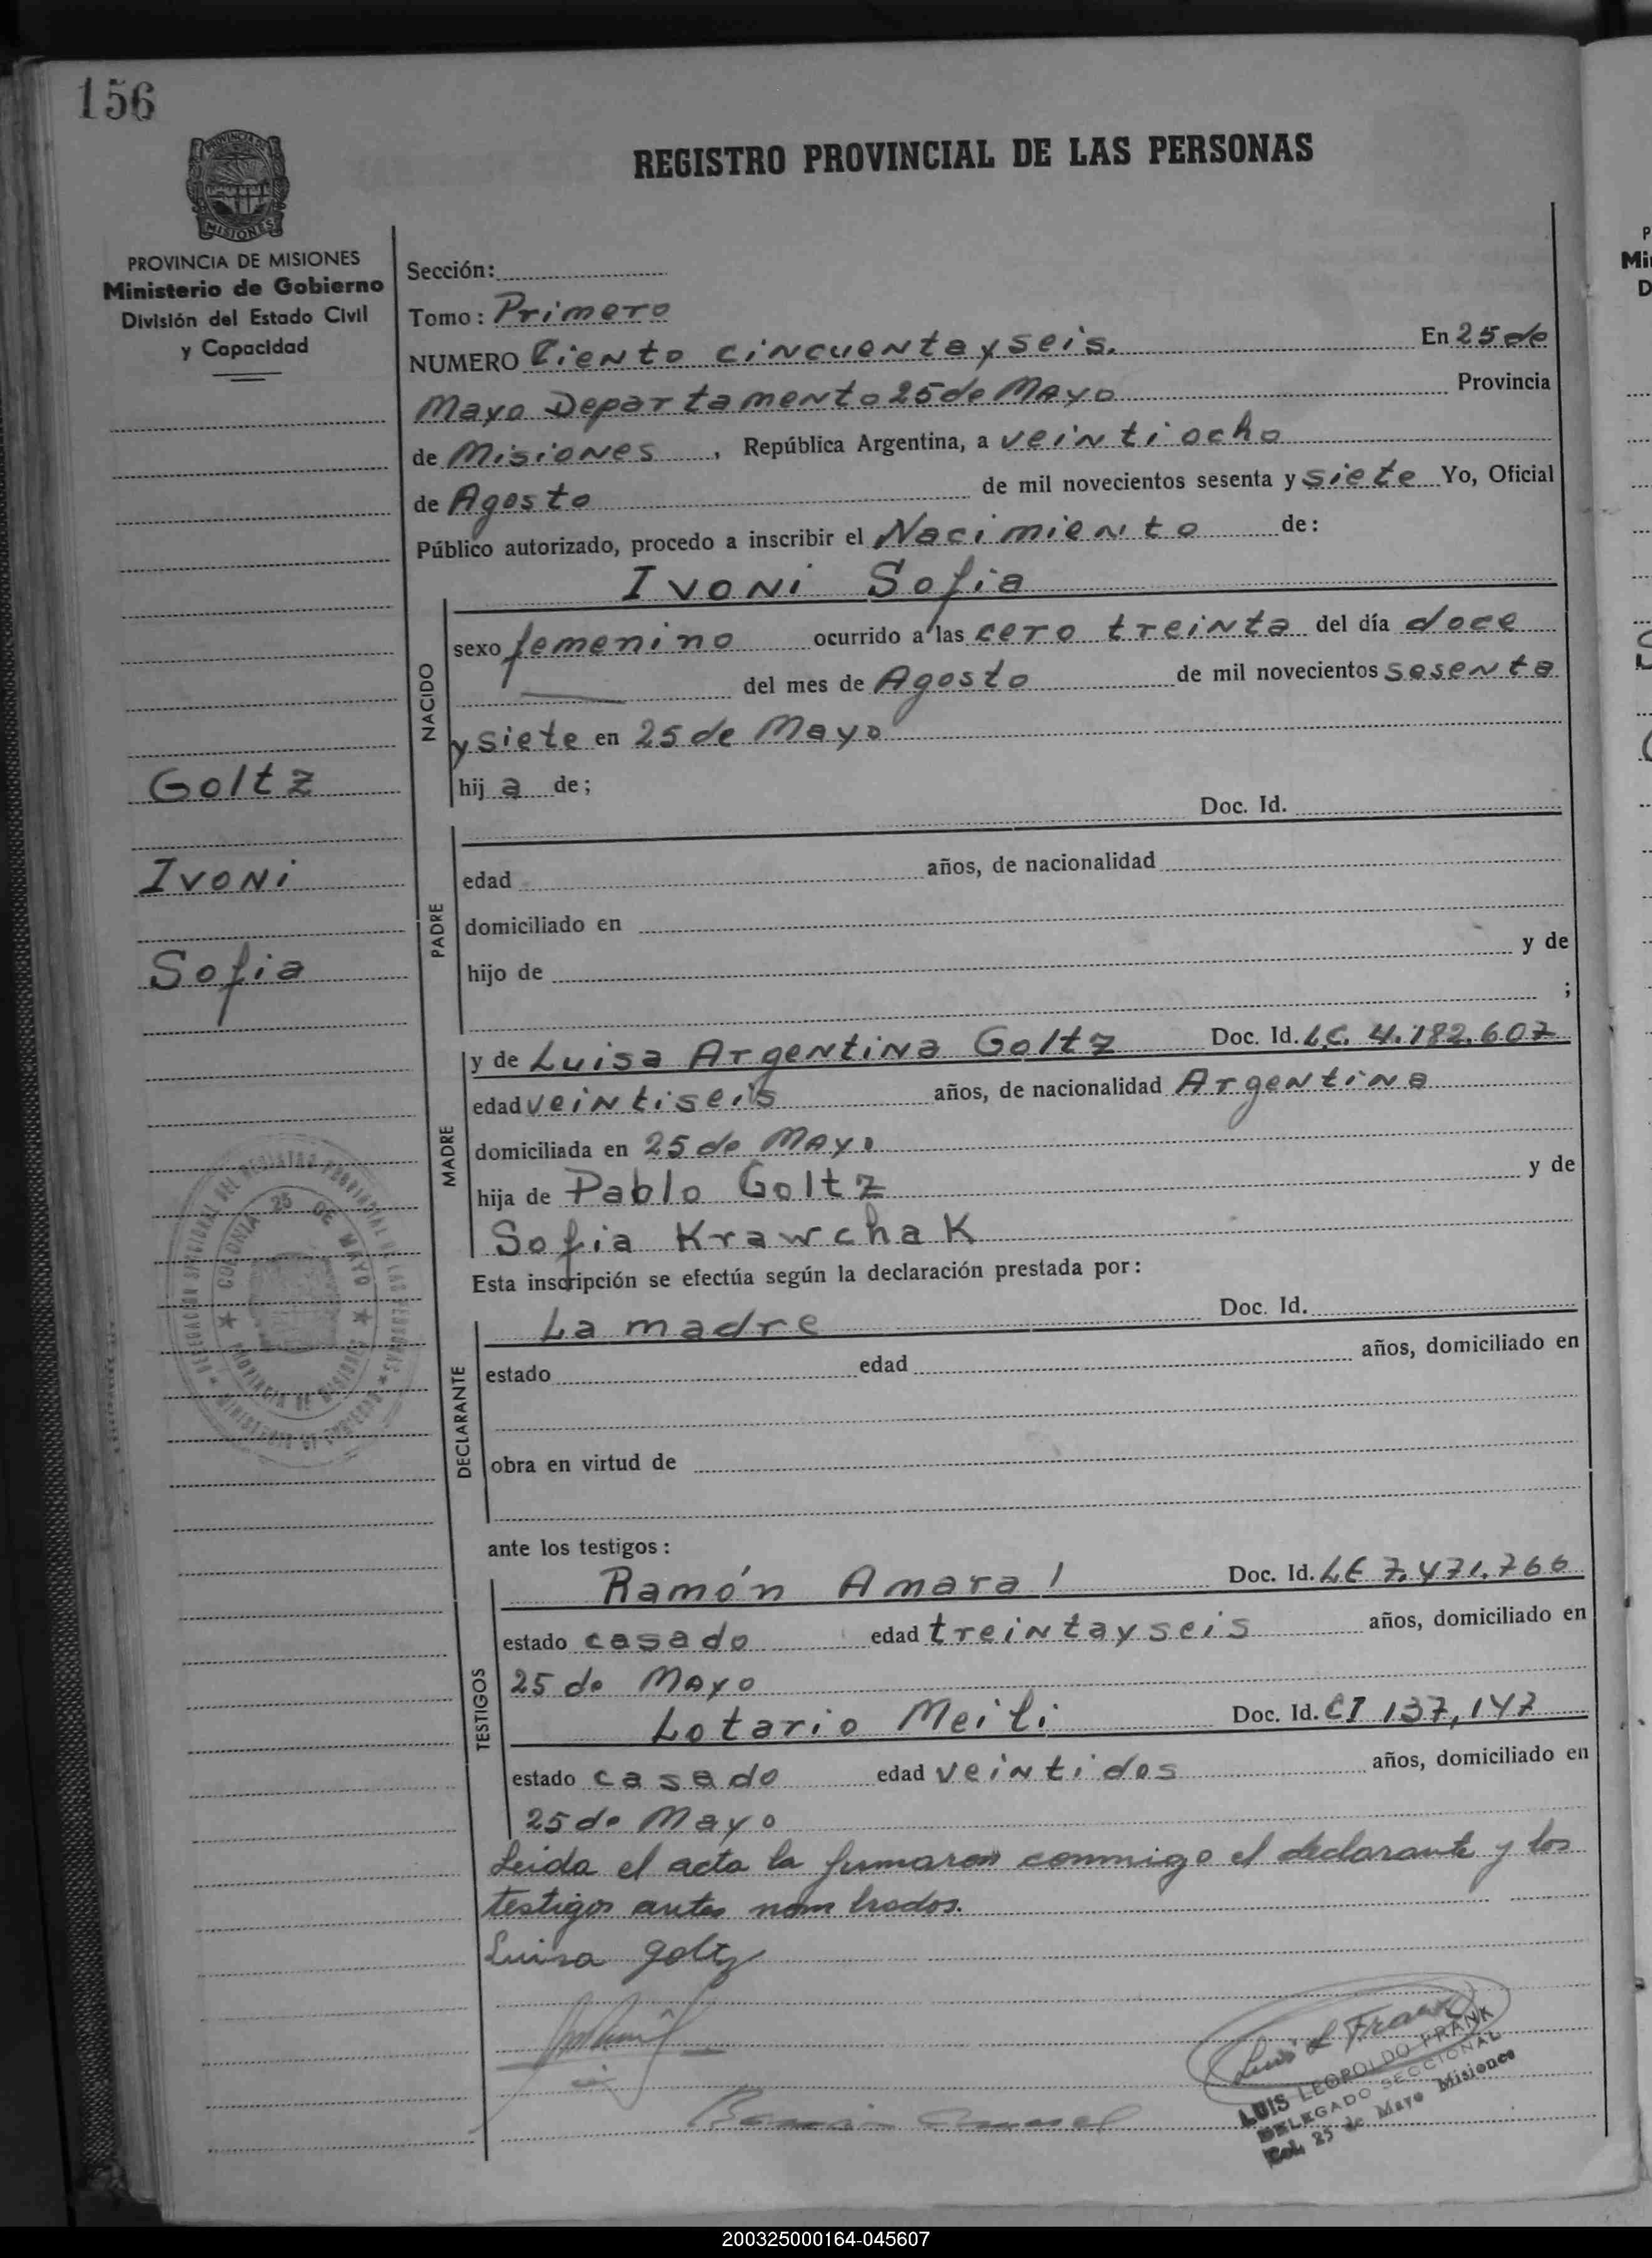 156
REGISTRO PROVINCIAL DE LAS PERSONAS
PROVINCIA DE MISIONES
Ministerio de Gobierno
División del Estado Civil
y Capacidad
Sección:
Tomo: Primero
NUMERO Ciento cincuenta y seis. En 25 de
Mayo Departamento 25 de Mayo Provincia
de Misiones, República Argentina, a veintiocho
de Agosto de mil novecientos sesenta y siete Yo, Oficial
Público autorizado, procedo a inscribir el Nacimiento de:
Ivoni Sofia
NACIDO
sexo femenino ocurrido a las cero treinta del día doce
del mes de Agosto de mil novecientos sesenta
y siete en 25 de Mayo
hij a de;
Goltz
Ivoni
Sofia
PADRE
Doc. Id.
edad años, de nacionalidad
domiciliado en
hijo de y de
;
MADRE
y de Luisa Argentina Goltz Doc. Id. LC. 4.182.607
edad veintiseis años, de nacionalidad Argentina
domiciliada en 25 de Mayo
hija de Pablo Goltz y de
Sofia Krawchak
Esta inscripción se efectúa según la declaración prestada por:
DECLARANTE
La madre Doc. Id.
estado edad años, domiciliado en
obra en virtud de
ante los testigos:
TESTIGOS
Ramón Amaral Doc. Id. LE 7.471.766
estado casado edad treinta y seis años, domiciliado en
25 de Mayo
Lotario Meili Doc. Id. CI 137,147
estado casado edad veintidos años, domiciliado en
25 de Mayo
Leida el acta la fumaron conmigo el declarante y los
testigos antes nombrados.
Luisa Goltz
Luis L Frank
LUIS LEOPOLDO FRANK
DELEGADO SECCIONAL
Col. 25 de Mayo Misiones
COLONIA 25 DE MAYO
PROVINCIA DE MISIONES
200325000164-045607